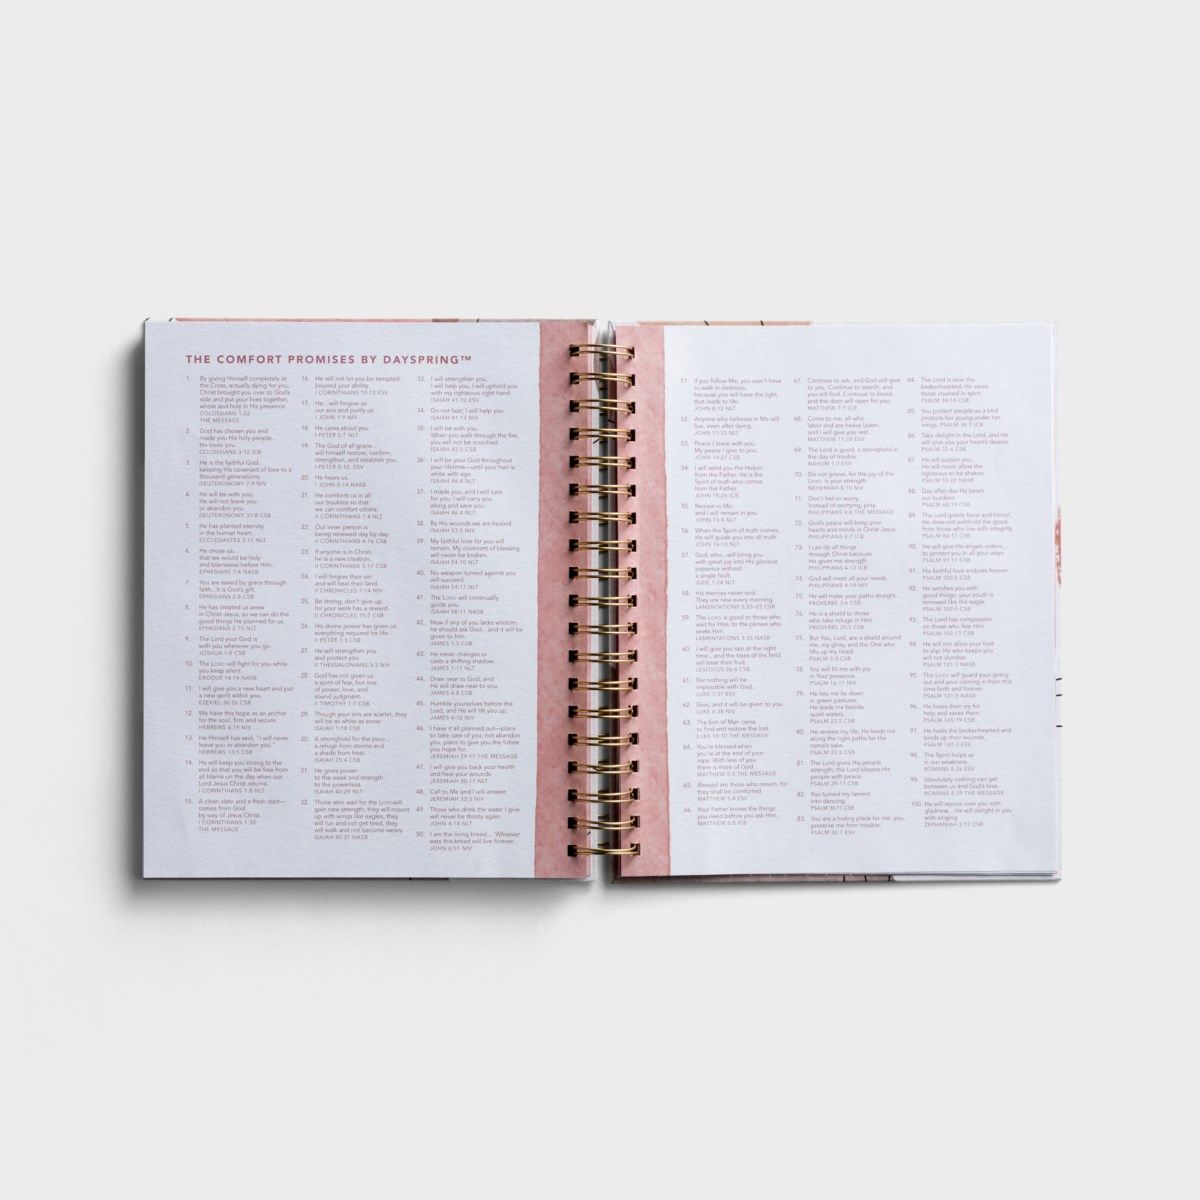 THE COMFORT PROMISES BY DAYSPRING™
1. By giving Himself completely at
the Cross, actually dying for you,
Christ brought you over to God's
side and put your lives together,
whole and holy in His presence.
COLOSSIANS 1:22
THE MESSAGE
2. God has chosen you and
made you His holy people.
He loves you.
COLOSSIANS 3:12 ICB
3. He is the faithful God,
keeping His covenant of love to a
thousand generations.
DEUTERONOMY 7:9 NIV
4. He will be with you;
He will not leave you
or abandon you.
DEUTERONOMY 31:8 CSB
5. He has planted eternity
in the human heart.
ECCLESIASTES 3:11 NLT
6. He chose us...
that we would be holy
and blameless before Him.
EPHESIANS 1:4 NASB
7. You are saved by grace through
faith...it is God's gift.
EPHESIANS 2:8 CSB
8. He has created us anew
in Christ Jesus, so we can do the
good things He planned for us.
EPHESIANS 2:10 NLT
9. The Lord your God is
with you wherever you go.
JOSHUA 1:9 CSB
10. The LORD will fight for you while
you keep silent.
EXODUS 14:14 NASB
11. I will give you a new heart and put
a new spirit within you.
EZEKIEL 36:26 CSB
12. We have this hope as an anchor
for the soul, firm and secure.
HEBREWS 6:19 NIV
13. He Himself has said, "I will never
leave you or abandon you."
HEBREWS 13:5 CSB
14. He will keep you strong to the
end so that you will be free from
all blame on the day when our
Lord Jesus Christ returns.
I CORINTHIANS 1:8 NLT
15. A clean slate and a fresh start—
comes from God
by way of Jesus Christ.
I CORINTHIANS 1:30
THE MESSAGE
16. He will not let you be tempted
beyond your ability.
I CORINTHIANS 10:13 ESV
17. He ...will forgive us
our sins and purify us.
I JOHN 1:9 NIV
18. He cares about you.
I PETER 5:7 NLT
19. The God of all grace...
will himself restore, confirm,
strengthen, and establish you.
I PETER 5:10 ESV
20. He hears us.
I JOHN 5:14 NASB
21. He comforts us in all
our troubles so that
we can comfort others.
II CORINTHIANS 1:4 NLT
22. Our inner person is
being renewed day by day.
II CORINTHIANS 4:16 CSB
23. If anyone is in Christ,
he is a new creation.
II CORINTHIANS 5:17 CSB
24. I will forgive their sin
and will heal their land.
II CHRONICLES 7:14 NIV
25. Be strong; don't give up,
for your work has a reward.
II CHRONICLES 15:7 CSB
26. His divine power has given us
everything required for life.
II PETER 1:3 CSB
27. He will strengthen you
and protect you.
II THESSALONIANS 3:3 NIV
28. God has not given us
a spirit of fear, but one
of power, love, and
sound judgment.
II TIMOTHY 1:7 CSB
29. Though your sins are scarlet, they
will be as white as snow.
ISAIAH 1:18 CSB
30. A stronghold for the poor...
a refuge from storms and
a shade from heat.
ISAIAH 25:4 CSB
31. He gives power
to the weak and strength
to the powerless.
ISAIAH 40:29 NLT
32. Those who wait for the LORDwill
gain new strength; they will mount
up with wings like eagles, they
will run and not get tired, they
will walk and not become weary.
ISAIAH 40:31 NASB
33. I will strengthen you,
I will help you, I will uphold you
with my righteous right hand.
ISAIAH 41:10 ESV
34. Do not fear; I will help you.
ISAIAH 41:13 NIV
35. I will be with you...
When you walk through the fire,
you will not be scorched.
ISAIAH 43:2 CSB
36. I will be your God throughout
your lifetime—until your hair is
white with age.
ISAIAH 46:4 NLT
37. I made you, and I will care
for you. I will carry you
along and save you.
ISAIAH 46:4 NLT
38. By His wounds we are healed.
ISAIAH 53:5 NIV
39. My faithful love for you will
remain. My covenant of blessing
will never be broken.
ISAIAH 54:10 NLT
40. No weapon turned against you
will succeed.
ISAIAH 54:17 NLT
41. The LORD will continually
guide you.
ISAIAH 58:11 NASB
42. Now if any of you lacks wisdom,
he should ask God...and it will be
given to him.
JAMES 1:5 CSB
43. He never changes or
casts a shifting shadow.
JAMES 1:17 NLT
44. Draw near to God, and
He will draw near to you.
JAMES 4:8 CSB
45. Humble yourselves before the
Lord, and He will lift you up.
JAMES 4:10 NIV
46. I have it all planned out—plans
to take care of you, not abandon
you, plans to give you the future
you hope for.
JEREMIAH 29:11 THE MESSAGE
47. I will give you back your health
and heal your wounds.
JEREMIAH 30:17 NLT
48. Call to Me and I will answer.
JEREMIAH 33:3 NIV
49. Those who drink the water I give
will never be thirsty again.
JOHN 4:14 NLT
50. I am the living bread.... Whoever
eats this bread will live forever.
JOHN 6:51 NIV
51. If you follow Me, you won't have
to walk in darkness,
because you will have the light
that leads to life.
JOHN 8:12 NLT
52. Anyone who believes in Me will
live, even after dying.
JOHN 11:25 NLT
53. Peace I leave with you.
My peace I give to you.
JOHN 14:27 CSB
54. I will send you the Helper
from the Father. He is the
Spirit of truth who comes
from the Father.
JOHN 15:26 ICB
55. Remain in Me,
and I will remain in you.
JOHN 15:4 NLT
56. When the Spirit of truth comes,
He will guide you into all truth.
JOHN 16:13 NLT
57. God, who...will bring you
with great joy into His glorious
presence without
a single fault.
JUDE 1:24 NLT
58. His mercies never end.
They are new every morning.
LAMENTATIONS 3:22-23 CSB
59. The LORD is good to those who
wait for Him, to the person who
seeks Him.
LAMENTATIONS 3:25 NASB
60. I will give you rain at the right
time...and the trees of the field
will bear their fruit.
LEVITICUS 26:4 CSB
61. For nothing will be
impossible with God.
LUKE 1:37 ESV
62. Give, and it will be given to you.
LUKE 6:38 NIV
63. The Son of Man came
to find and restore the lost.
LUKE 19:10 THE MESSAGE
64. You're blessed when
you're at the end of your
rope. With less of you
there is more of God.
MATTHEW 5:3 THE MESSAGE
65. Blessed are those who mourn, for
they shall be comforted.
MATTHEW 5:4 ESV
66. Your Father knows the things
you need before you ask Him.
MATTHEW 6:8 ICB
67. Continue to ask, and God will give
to you. Continue to search, and
you will find. Continue to knock,
and the door will open for you.
MATTHEW 7:7 ICB
68. Come to me, all who
labor and are heavy laden,
and I will give you rest.
MATTHEW 11:28 ESV
69. The Lord is good, a stronghold in
the day of trouble.
NAHUM 1:7 ESV
70. Do not grieve, for the joy of the
LORD is your strength.
NEHEMIAH 8:10 NIV
71. Don't fret or worry.
Instead of worrying, pray.
PHILIPPIANS 4:6 THE MESSAGE
72. God's peace will keep your
hearts and minds in Christ Jesus.
PHILIPPIANS 4:7 ICB
73. I can do all things
through Christ because
He gives me strength.
PHILIPPIANS 4:13 ICB
74. God will meet all your needs.
PHILIPPIANS 4:19 NIV
75. He will make your paths straight.
PROVERBS 3:6 CSB
76. He is a shield to those
who take refuge in Him.
PROVERBS 30:5 CSB
77. But You, Lord, are a shield around
me, my glory, and the One who
lifts up my head.
PSALM 3:3 CSB
78. You will fill me with joy
in Your presence.
PSALM 16:11 NIV
79. He lets me lie down
in green pastures;
He leads me beside
quiet waters.
PSALM 23:2 CSB
80. He renews my life; He leads me
along the right paths for His
name's sake.
PSALM 23:3 CSB
81. The Lord gives His people
strength; the Lord blesses His
people with peace.
PSALM 29:11 CSB
82. You turned my lament
into dancing.
PSALM 30:11 CSB
83. You are a hiding place for me; you
preserve me from trouble.
PSALM 32:7 ESV
84. The Lord is near the
brokenhearted; He saves
those crushed in spirit.
PSALM 34:18 CSB
85. You protect people as a bird
protects her young under her
wings. PSALM 36:7 ICB
86. Take delight in the Lord, and He
will give you your heart's desires.
PSALM 37:4 CSB
87. He will sustain you;
He will never allow the
righteous to be shaken.
PSALM 55:22 NASB
88. Day after day He bears
our burdens.
PSALM 68:19 CSB
89. The Lord grants favor and honor;
He does not withhold the good
from those who live with integrity.
PSALM 84:11 CSB
90. He will give His angels orders...
to protect you in all your ways.
PSALM 91:11 CSB
91. His faithful love endures forever.
PSALM 100:5 CSB
92. He satisfies you with
good things; your youth is
renewed like the eagle.
PSALM 103:5 CSB
93. The Lord has compassion
on those who fear Him.
PSALM 103:13 CSB
94. He will not allow your foot
to slip; He who keeps you
will not slumber.
PSALM 121:3 NASB
95. The LORD will guard your going
out and your coming in from this
time forth and forever.
PSALM 121:8 NASB
96. He hears their cry for
help and saves them.
PSALM 145:19 CSB
97. He heals the brokenhearted and
binds up their wounds.
PSALM 147:3 ESV
98. The Spirit helps us
in our weakness.
ROMANS 8:26 ESV
99. Absolutely nothing can get
between us and God's love.
ROMANS 8:39 THE MESSAGE
100. He will rejoice over you with
gladness. ...He will delight in you
with singing.
ZEPHANIAH 3:17 CSB